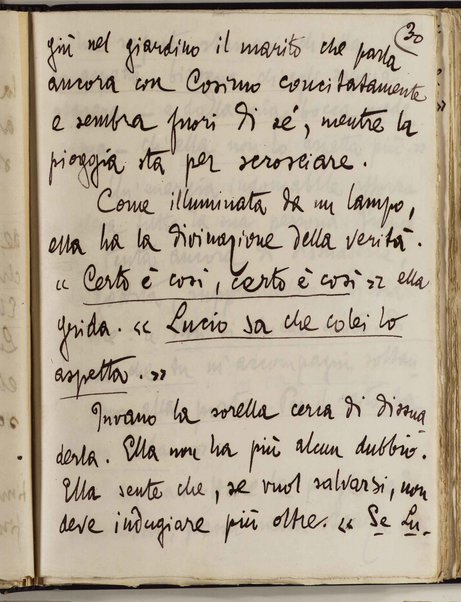 30
giù nel giardino il marito che parla
ancora con Cosimo concitatamente
e sembra fuori di sé, mentre la
pioggia sta per scrosciare.
Come illuminata da un lampo,
ella ha la divinazione della verità.
« Certo è così, certo è così » ella
grida. « Lucio sa che colei lo
aspetta. »
Invano la sorella cerca di dissua
derla. Ella non ha più alcun dubbio.
Ella sente che, se vuol salvarsi, non
deve indugiare più oltre. « Se Lu-